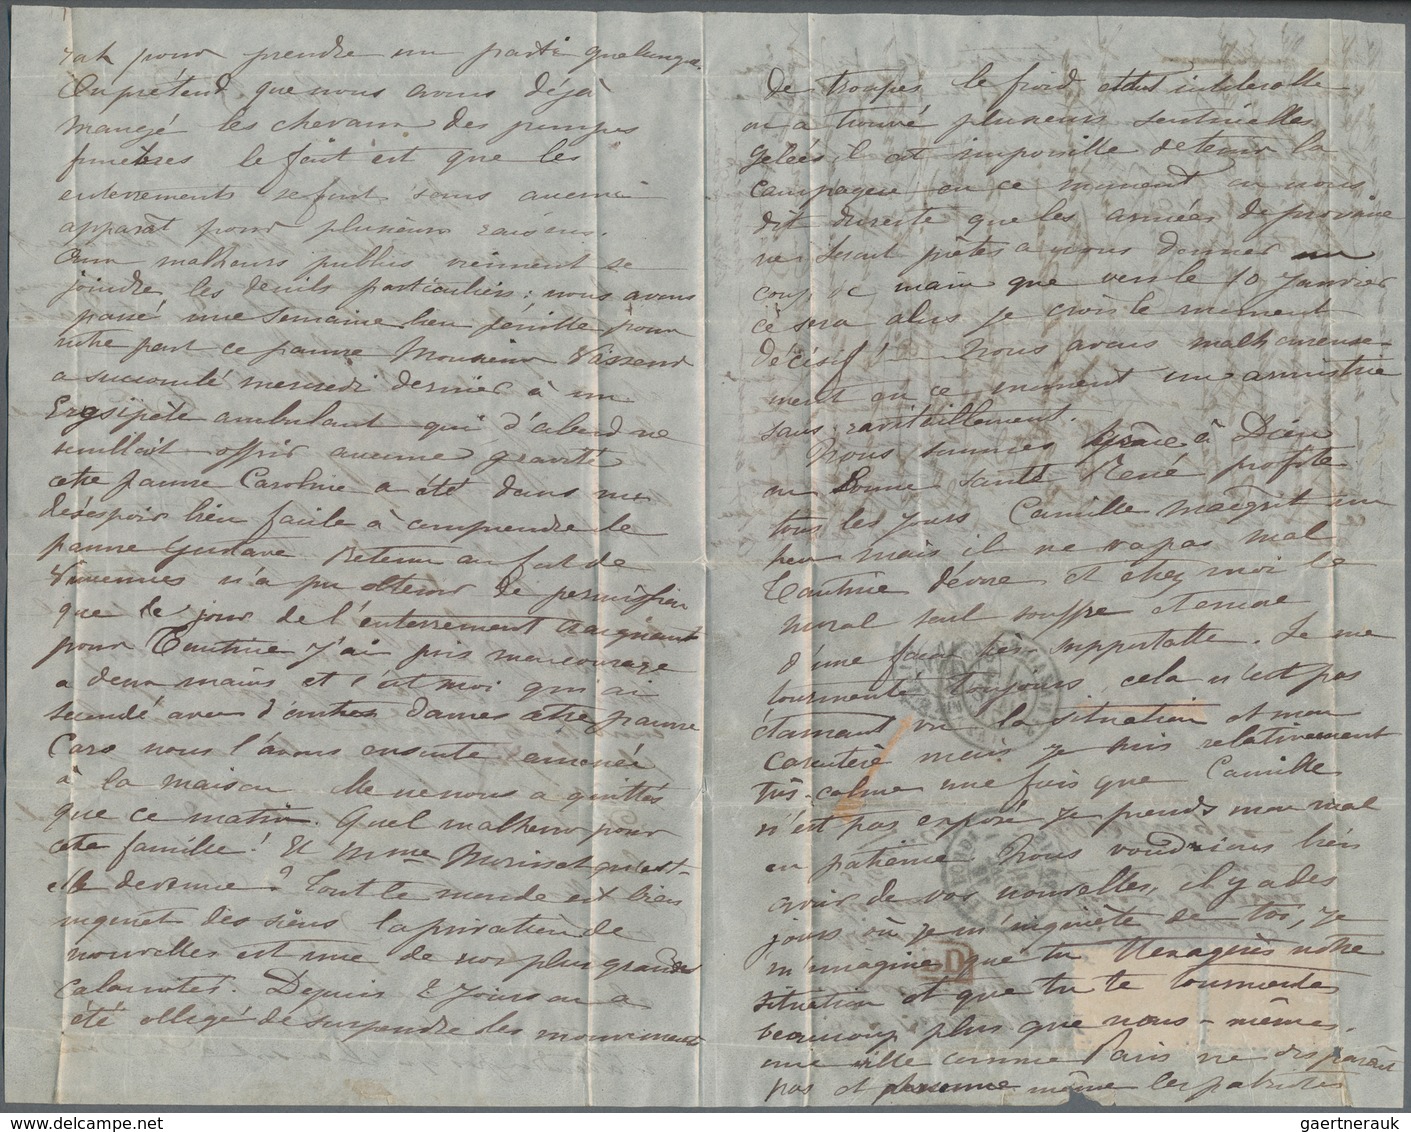 pour prendre un parti quelconque.
On prétend que nous avons déjà
mangé les chevaux des pompes
funèbres le fait est que les
enterrements se font sans aucun
apparat pour plusieurs raisons.
Aux malheurs publics viennent se
joindre les deuils particuliers : nous avons
passé une semaine bien pénible pour
notre part ce pauvre Monsieur
a succombé mercredi dernier à un
Erysipèle ambulant qui d'abord ne
semblait offrir aucune gravité
cette pauvre Caroline a été dans un
désespoir bien facile à comprendre le
pauvre Gustave Retenu au fort de
Vincennes n'a pu obtenir de permission
que le jour de l'enterrement Craignant
pour j'ai pris mon courage
a deux mains et c'est moi qui ai
secondé avec d'autres dames cette pauvre
Caro nous l'avons ensuite amenée
à la maison Elle ne nous a quittés
que ce matin. Quel malheur pour
cette famille ! Et Mme qu'est-
elle devenue ? Tout le monde est bien
inquiet des siens la privation de
nouvelles est une de nos plus grandes
calamités. Depuis 2 jours on a
été obligé de suspendre les mouvements
de troupes le froid est intolerable
on a trouvé plusieurs sentinelles
gelées, il est impossible de tenir la
campagne en ce moment on nous
dit ensuite que les armées de province
ne seront prêtes a nous donner un
coup de main que vers le 10 Janvier
ce sera alors je crois le moment
décisif ! Nous avons malheureuse-
ment en ce moment une armistice
sans ravitaillement.
Nous sommes grâce à Dieu
en bonne santé René profite
tous les jours Camille maigrit un
peu mais il ne va pas mal
dévore et chez moi le
moral seul souffre et encore
d'une façon très supportable. Je me
tourmente toujours, cela n'est pas
étonnant vu la situation et mon
caractère mais je suis relativement
très-calme une fois que Camille
n'est pas exposé je prends mon mal
en patience Nous voudrions bien
avoir de vos nouvelles, il y a des
jours où je m'inquiète de toi, je
m'imagine que tu t'exagères notre
situation et que tu te tourmentes
beaucoup plus que nous-mêmes.
une ville comme Paris ne disparait
pas et personne même les patriotes
PD
gaertnerauk.com